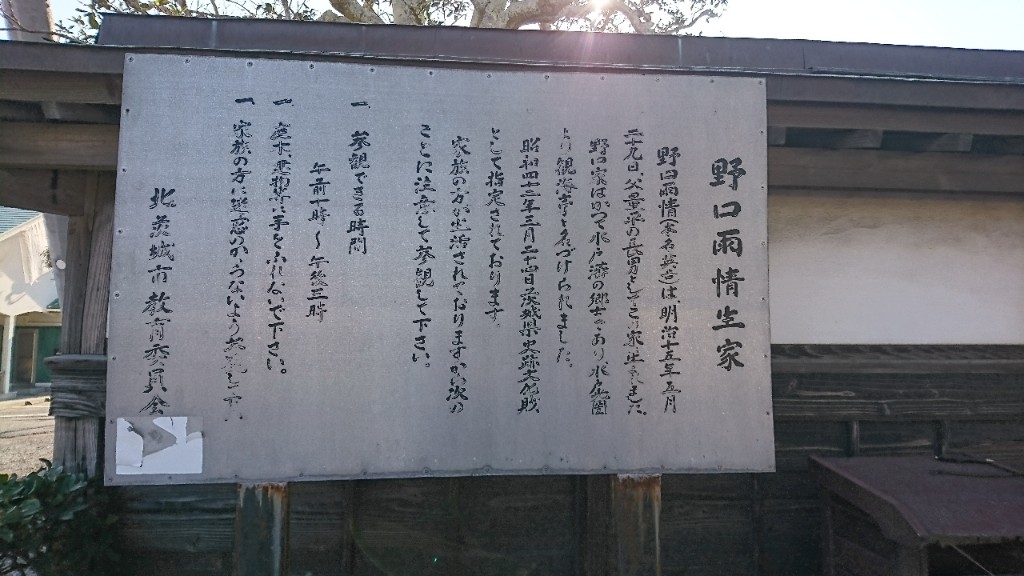 野口雨情生家
野口雨情(本名英吉)は明治十五年五月
二十九日、父量平の長男としてこの家に生れました。
野口家はかつて水戸藩の郷士であり水戸公
より観海亭と名づけられました。
昭和四十二年三月二十四日茨城県史跡文化財
として指定されております。
家族の方が生活されておりますから次の
ことに注意して参観して下さい。
一、参観できる時間
午前十時〜午後三時
一、庭木建物等に手をふれないで下さい。
一、家族の方に迷惑のかゝらないよう参観して下
北茨城市教育委員会